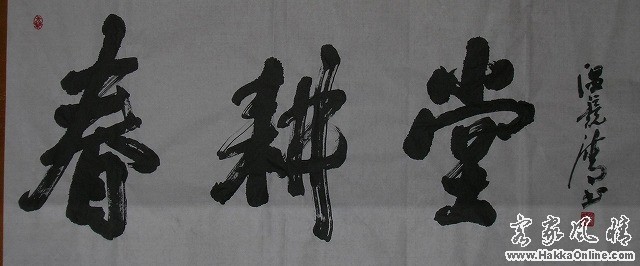 春耕堂
客家风情
www.HakkaOnline.com